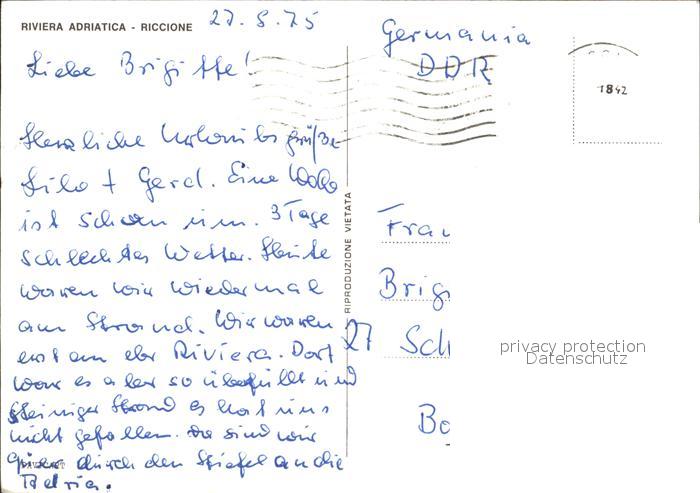 RIVIERA ADRIATICA - RICCIONE
27. 8. 75
Liebe Brigitte!
Herzliche Urlaubsgrüße
Silo + Gerd. Eine Woche
ist schon um. 3 Tage
schlechtes Wetter. Heute
waren wir wiedermal
am Strand. Wir waren
erst an der Riviera. Dort
war es aber so überfüllt und
steiniger Strand es hat uns
nicht gefallen. da sind wir
quer durch den Stiefel an die
Adria.
RIPRODUZIONE VIETATA
Germania
DDR
1842
Frau
Brigi
27 Sch
Bo
privacy protection
Datenschutz